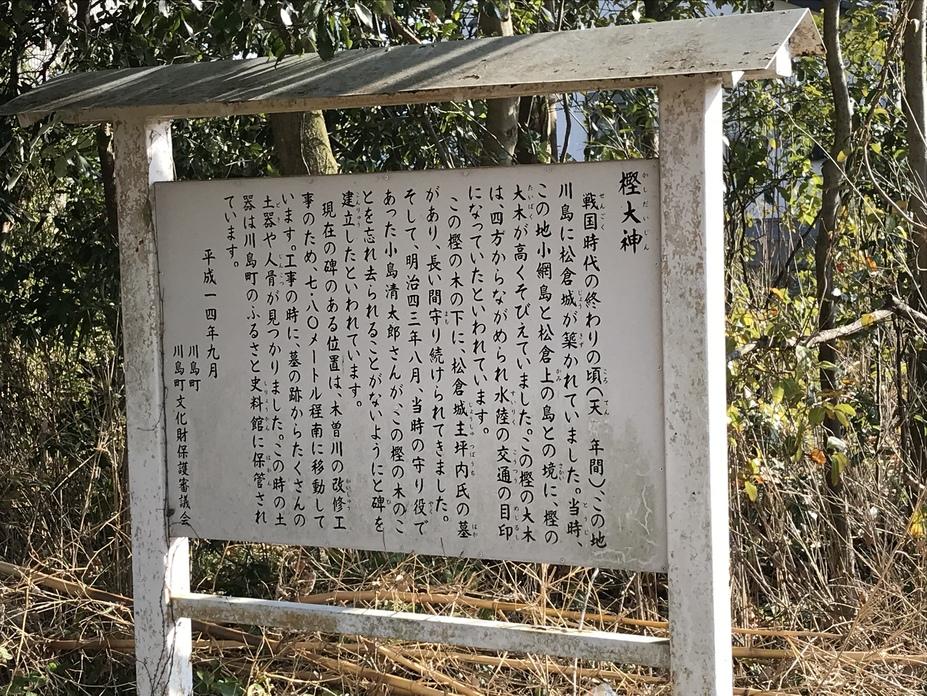 樫大神
戦国時代の終わりの頃(天 年間)、この地
川島に松倉城が築かれていました。当時、
この地小網島と松倉上の島との境に、樫の
大木が高くそびえていました。この樫の大木
は、四方からながめられ水陸の交通の目印
になっていたといわれています。
この樫の木の下に、松倉城主坪内氏の墓
があり、長い間守り続けられてきました。
そして、明治四三年八月、当時の守り役で
あった小島清太郎さんが、この樫の木のこ
とを忘れ去られることがないようにと碑を
建立したといわれています。
現在の碑のある位置は、木曽川の改修工
事のため、七・八〇メートル程南に移動して
います。工事の時に、墓の跡からたくさんの
土器や人骨が見つかりました。この時の土
器は川島町のふるさと史料館に保管され
ています。
平成一四年九月
川島町
川島町文化財保護審議会